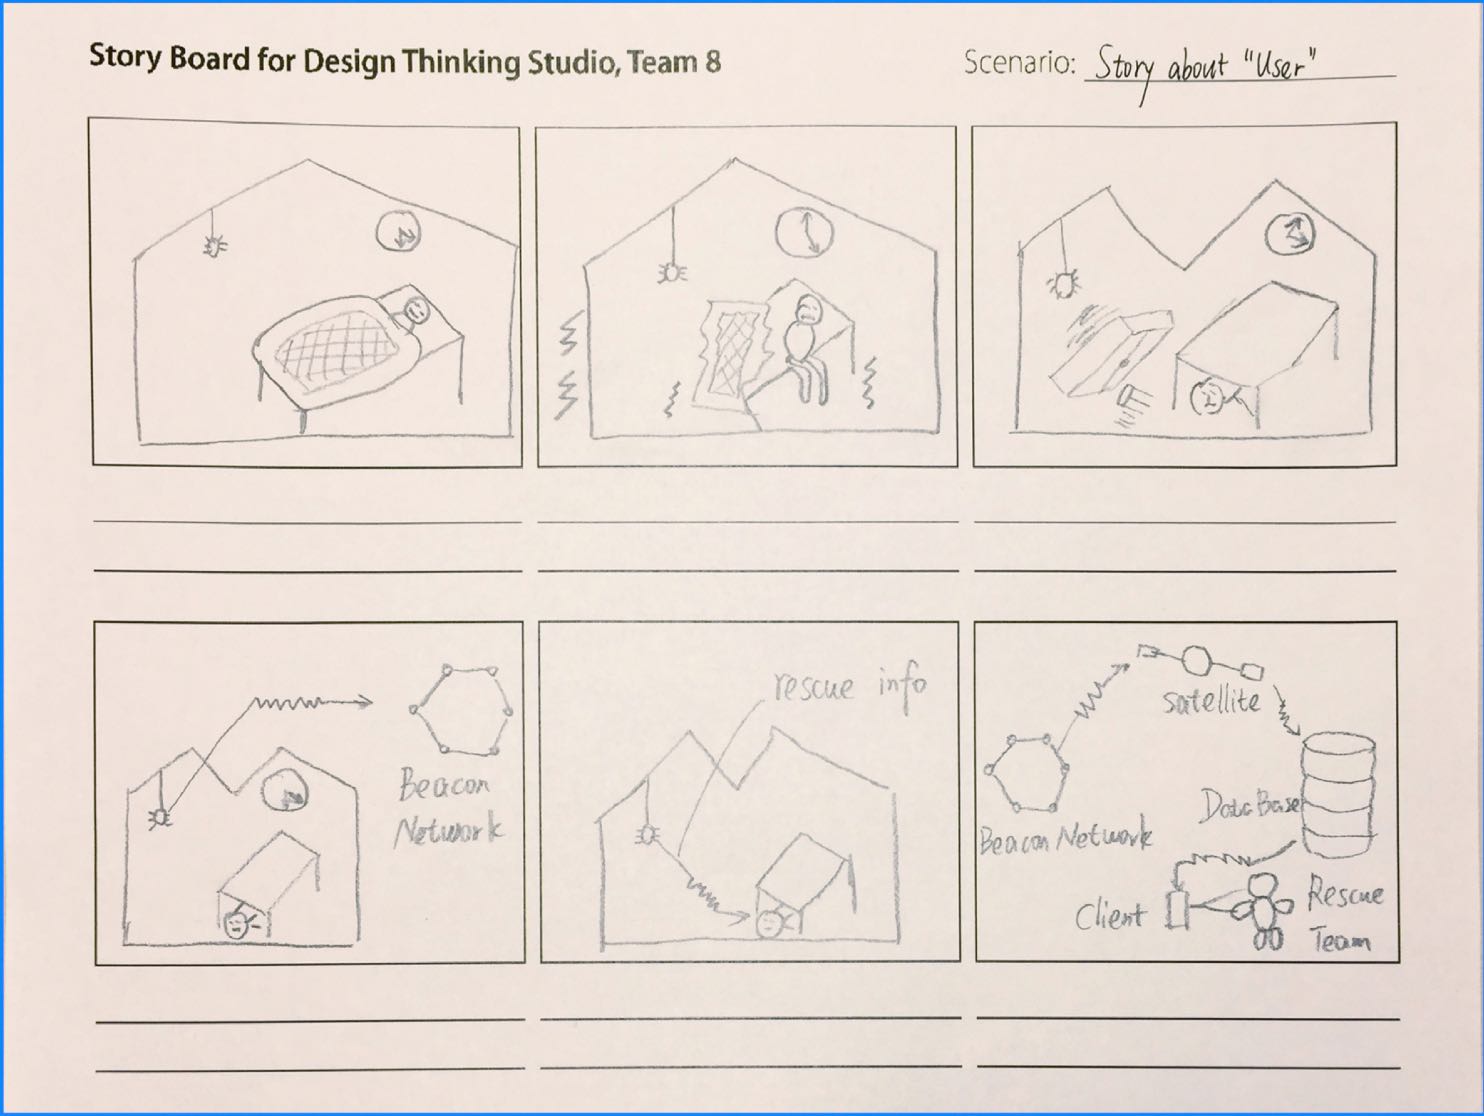 Story Board for Design Thinking Studio, Team 8
Scenario: Story about "User"
Beacon
Network
rescue info
satellite
DataBase
Beacon Network
Client
Rescue
Team